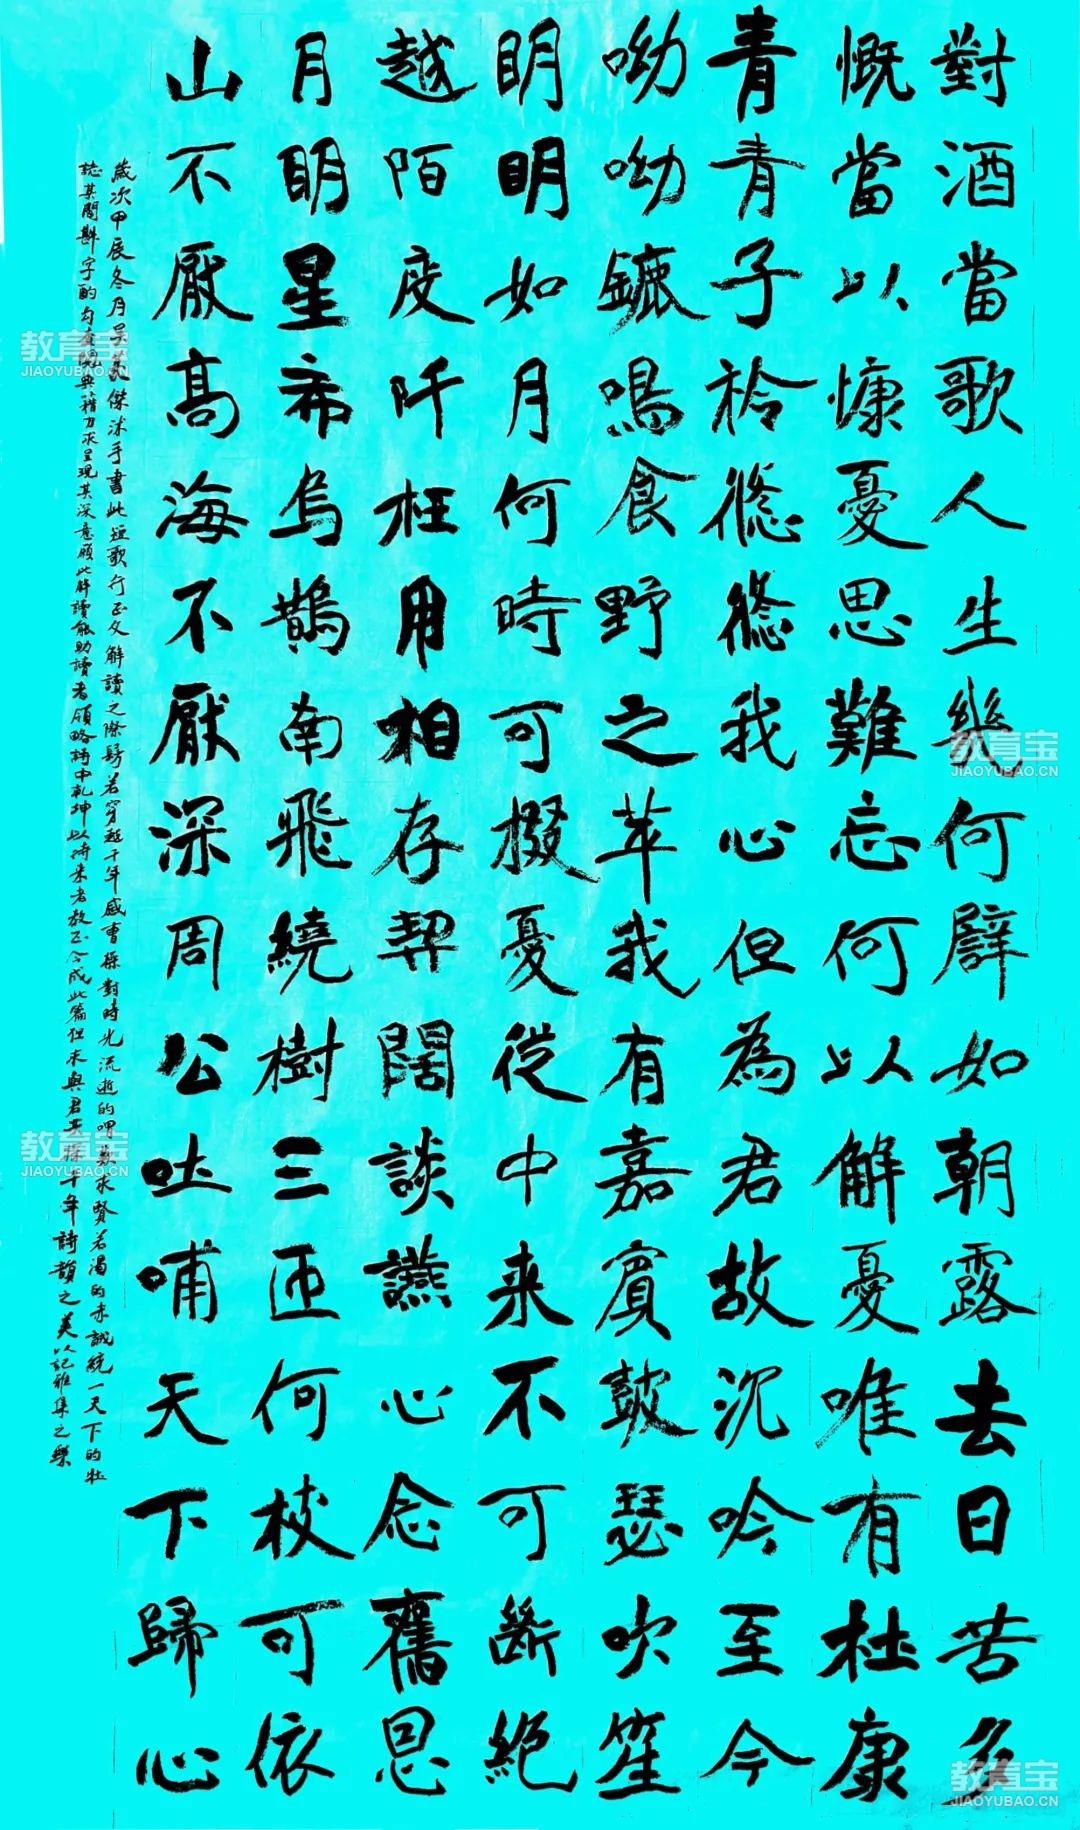 對酒當歌人生幾何譬如朝露去日苦多
慨當以慷憂思難忘何以解憂唯有杜康
青青子衿悠悠我心但為君故沉吟至今
呦呦鏕鳴食野之苹我有嘉賓鼓瑟吹笙
明明如月何時可掇憂從中来不可斷絕
越陌度阡枉用相存契闊談讌心念舊恩
月明星希烏鵲南飛繞樹三匝何枝可依
山不厭高海不厭深周公吐哺天下歸心
歲次甲辰冬月吳傑沐手書此短歌行正文解讀之際髣若穿越千年感曹操對時光流逝的喟嘆求賢若渴的赤誠統一天下的壯
誌其間斟字酌句查閱典籍力求呈現其深意願此解讀能助讀者領略詩中乾坤以待来者教正今成此篇但求與君共探千年詩韻之美以記雅集之樂
教育宝
JIAOYUBAO.CN
教育宝
JIAOYUBAO.CN
教育宝
JIAOYUBAO.CN
教育宝
JIAOYUBAO.CN